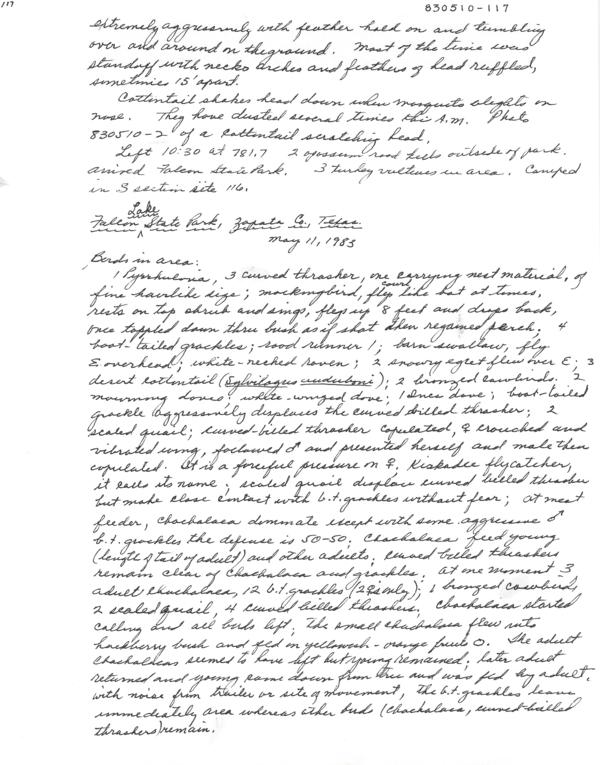 117
830510-117
extremely aggressively with feather hold on and tumbling
over and around on the ground. Most of the time was
standoff with necks arches and feathers of head ruffled,
sometimes 15' apart.
Cottontail shakes head down when mosquito alights on
nose. They have dusted several times this A.M. Photo
830510-2 of a cottontail scratching head.
Left 10:30 at 781.7 2 opossum road kills outside of park.
arrived Falcon State Park. 3 turkey vultures in area. Camped
in S section site 116.
Lake
Falcon State Park, Zapata Co., Texas.
May 11, 1983
Birds in area:
1 Pyrrhuloxia, 3 curved thrasher, one carrying nest material, of
fine hairlike size; mockingbird, flys like bat at times,
rests on top shrub and sings, flys up 8 feet and drops back,
once toppled down thru bush as if shot then regained perch; 4
boat-tailed grackles; road runner 1; barn swallow, fly
E overhead; white-necked raven; 2 snowy egret flew over E; 3
desert cottontail (Sylvilagus auduboni); 2 bronzed cowbirds. 2
mourning doves; white-winged dove; 1 Inca dove; boat-tailed
grackle aggressively displaces the curved billed thrasher; 2
scaled quail; curved-billed thrasher copulated, ♀ crouched and
vibrated wing, followed ♂ and presented herself and male then
copulated. It is a forceful pressure on ♀; Kiskadee flycatcher,
it calls its name; scaled quail displace curved billed thrasher
but make close contact with b.t. grackles without fear; at meat
feeder, Chachalaca dominate except with some aggressive ♂
b.t. grackles the defense is 50-50. Chachalaca feed young
(length of tail of adult) and other adults; curved billed thrashers
remain clear of Chachalaca and grackles. At one moment 3
adult Chachalacas, 12 b.t. grackles (2♀s only); 1 bronzed cowbird,
2 scaled quail, 4 curved billed thrashers; Chachalaca started
calling and all birds left; The small chachalaca flew into
hackberry bush and fed on yellowish-orange fruit. The adult
Chachalacas seemed to have left but young remained; later adult
returned and young came down from tree and was fed by adult.
with noise from trailer or site of movement, the b.t. grackles leave
immediately area whereas other birds (Chachalaca, curved-billed
thrashers) remain.